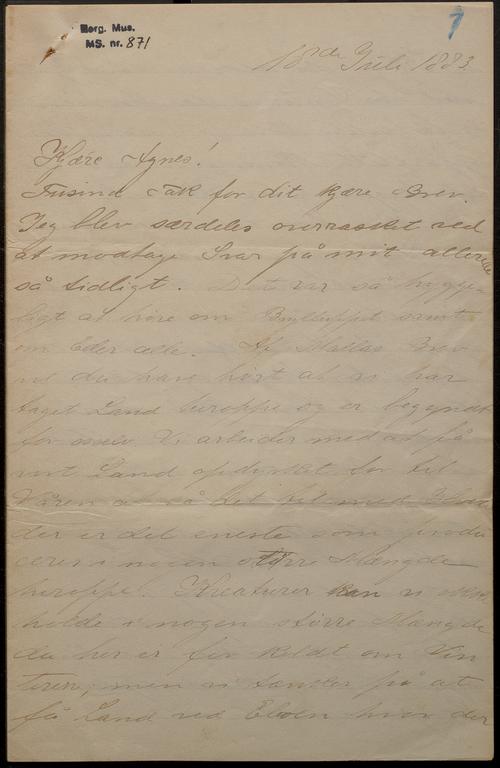 Berg. Mus.
MS. nr. 871
1
18de Juli 1883
Kjære Agnes!
Tusind Tak for dit kjære Brev.
Jeg blev særdeles overrasket ved
at modtage Svar på mit allerede
så tidligt. Det var så hygge-
ligt at høre om Brylluppet samt
om Eder alle. Af Mallas Brev
vil du have hørt at vi har
taget Land heroppe og er begyndt
for os selv. Vi arbeider med at få
vort Land opdyrket for til
Våren at så det til med
der er det eneste som produ
ceres i nogen større Mængde
heroppe. Kreaturer kan vi ikke
holde i nogen större Mængde
da her er for koldt om Vin
teren, men vi tænker på at
få Land ved Elven hvor der